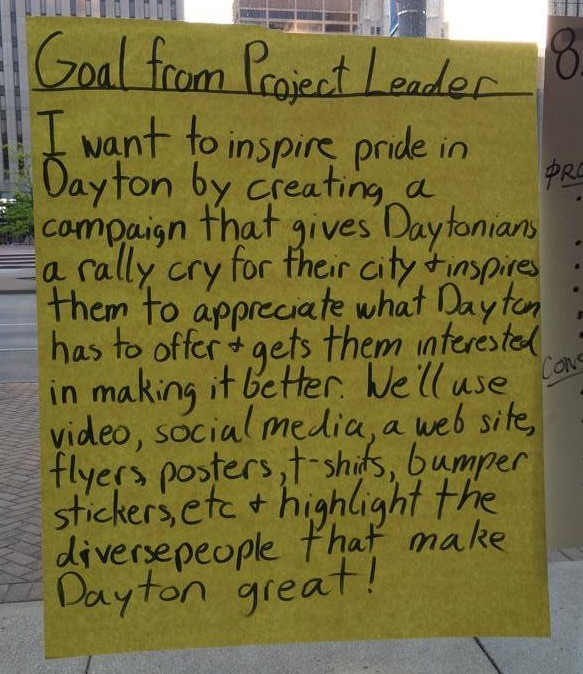 Goal from Project Leader
I want to inspire pride in
Dayton by creating a
campaign that gives Daytonians
a rally cry for their city + inspires
them to appreciate what Dayton
has to offer + gets them interested
in making it better. We'll use
video, social media, a web site,
flyers posters, t-shits, bumper
stickers, etc + highlight the
diverse people that make
Dayton great!
8
PRO
CONS